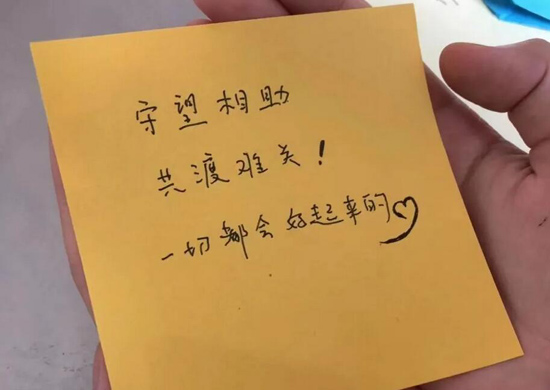 守望相助
共渡难关！
一切都会好起来的♡